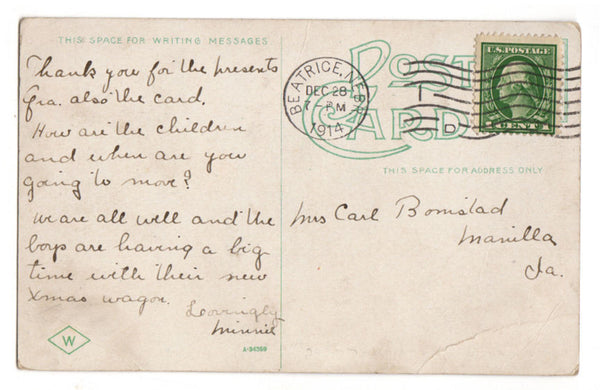 THIS SPACE FOR WRITING MESSAGES
Thank you for the presents
Gra. also the card.
How are the children
and when are you
going to move?
We are all well and the
boys are having a big
time with their new
Xmas wagon.
Lovingly
Minnie
W
A-34359
POST
CARD
BEATRICE, NEBR.
DEC 28
7 - PM
1914
D
U.S. POSTAGE
CENT
THIS SPACE FOR ADDRESS ONLY
Mrs Carl Bomstad
Manilla
Ia.